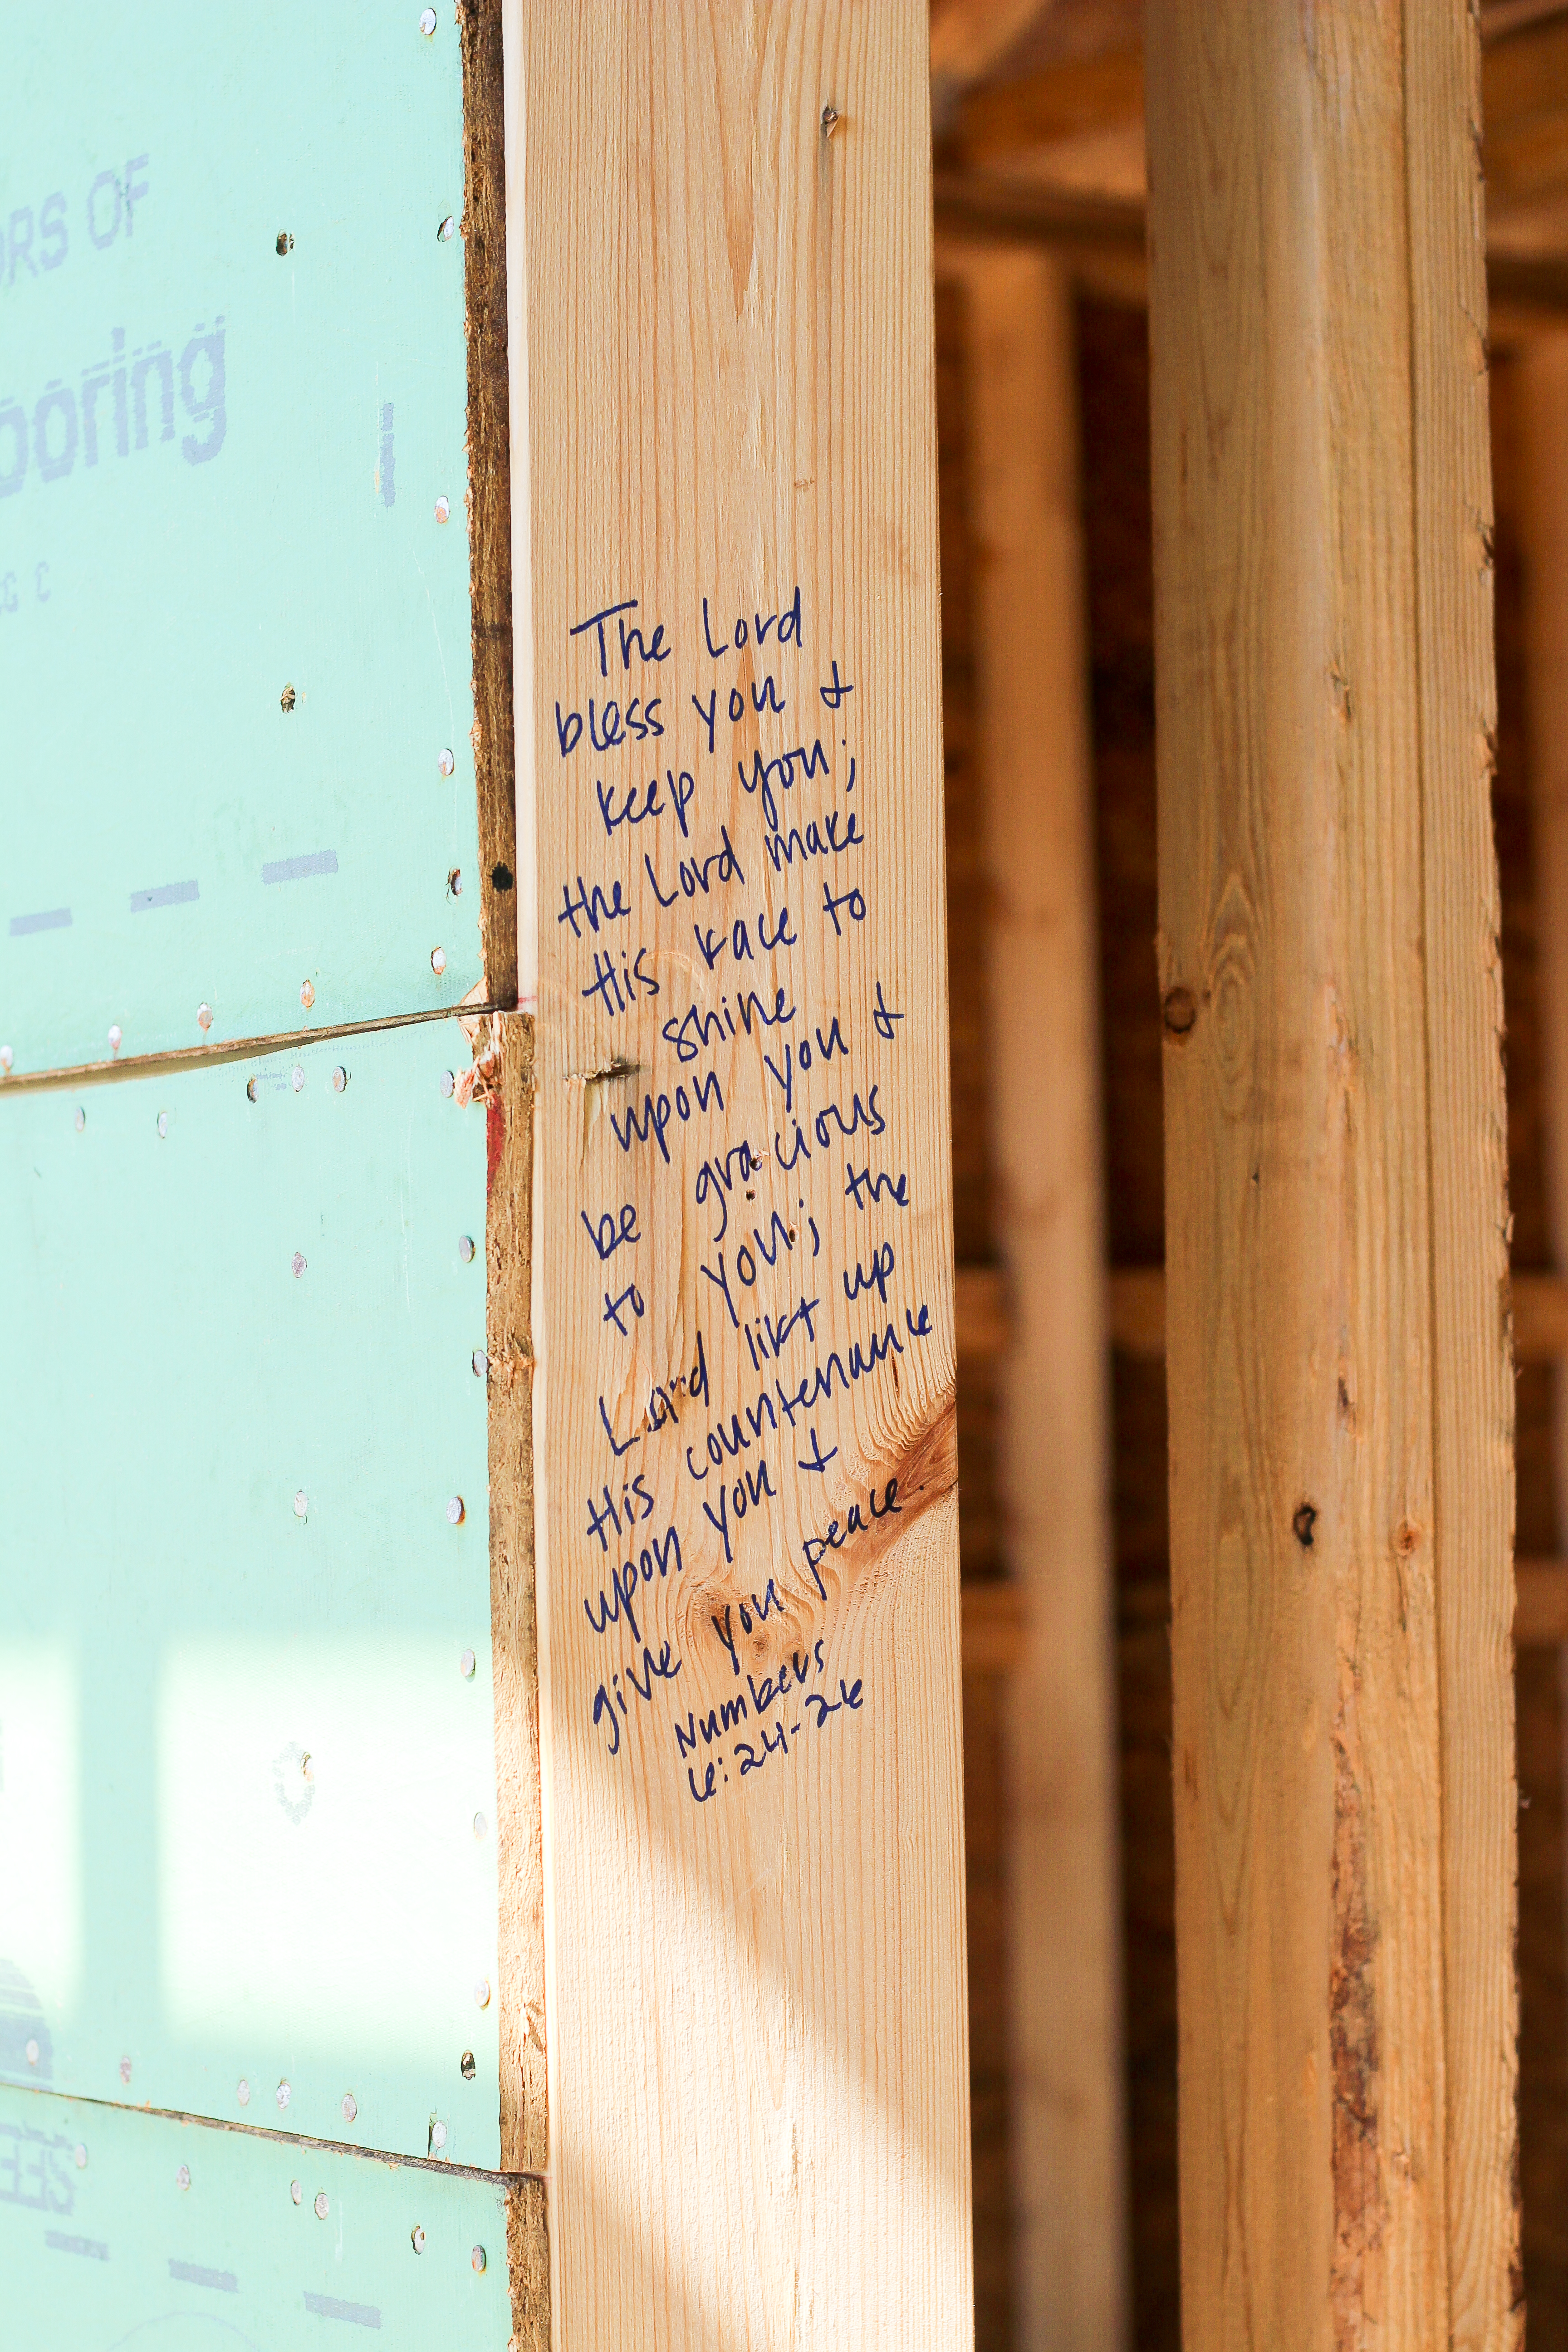 ORS OF
ooring
The Lord
bless you &
keep you;
the Lord make
His face to
shine
upon you &
be gracious
to you; the
Lord lift up
His countenance
upon you &
give you peace.
Numbers
6:24-26